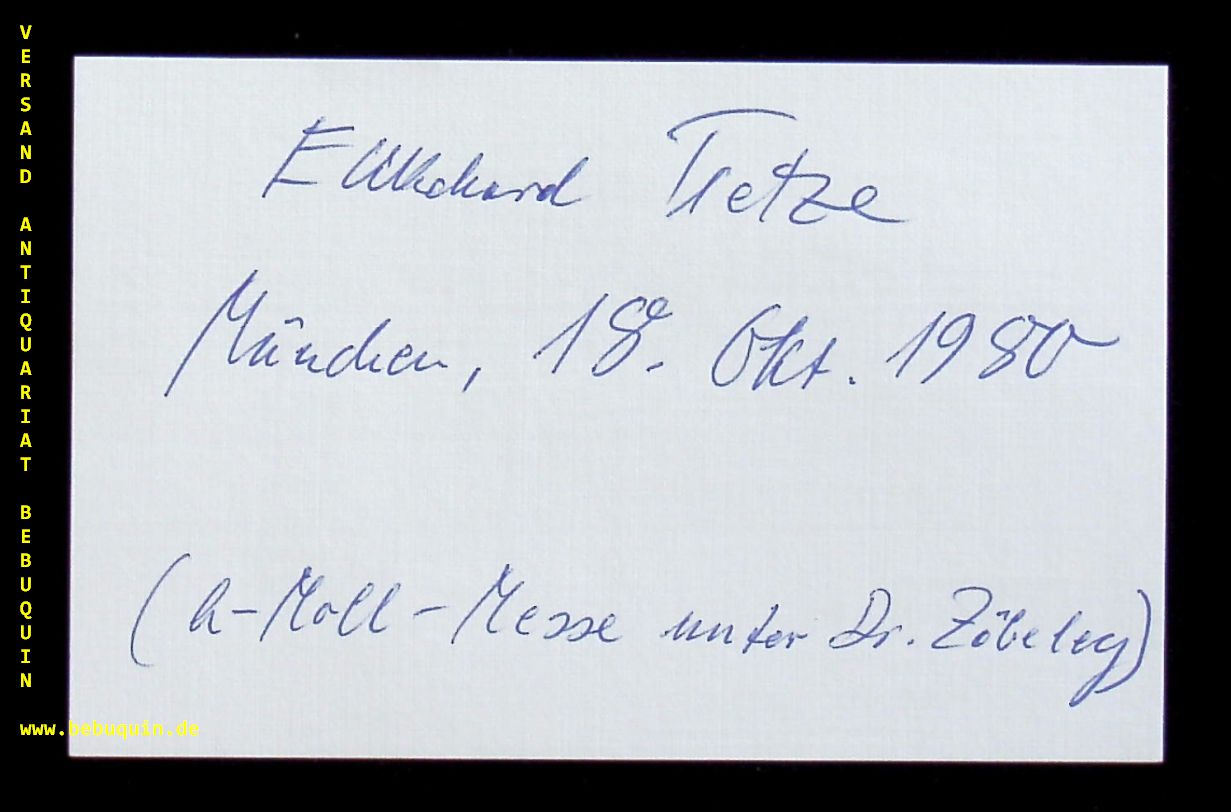 VERSAND ANTIQUARIAT BEBUQUIN
www.bebuquin.de
Ekkehard Tietze
München, 18. Okt. 1980
(h-Moll-Messe unter Dr. Zöbeley)